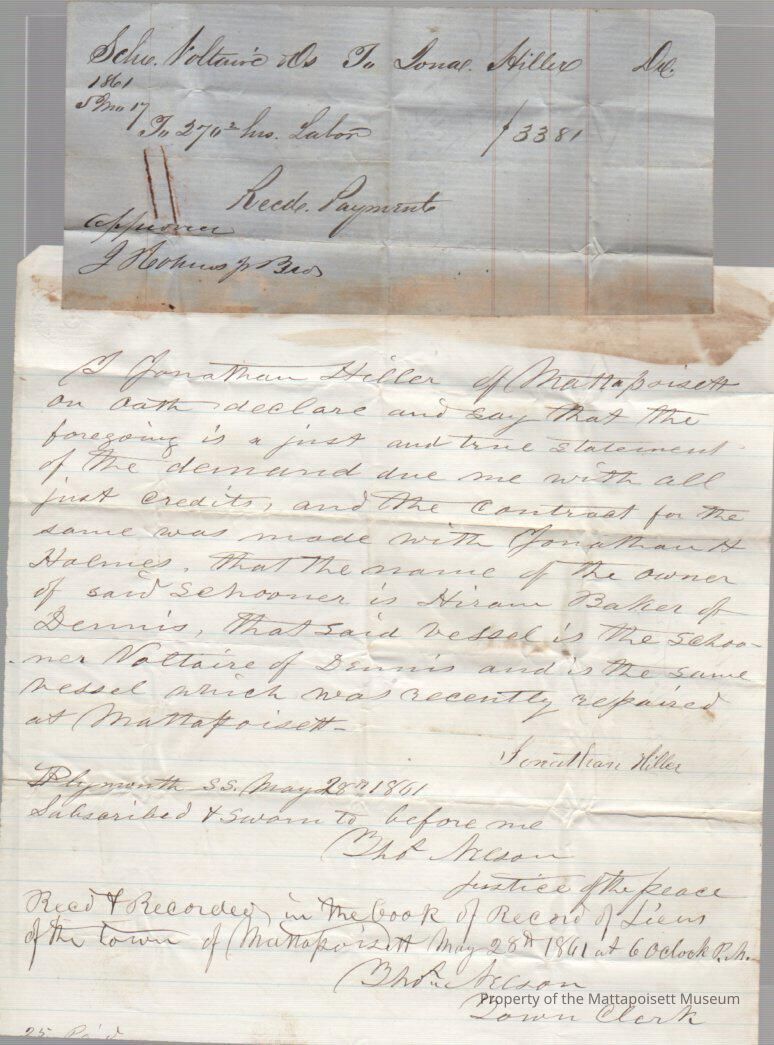 Schr. Voltaire & Os To Jonan. Hiller Dr.
1861
5 Mo 17
To 270 2 hrs. Labor $33 81
Recd. Payment
Approved
J Holmes Jr Bro
I Jonathan Hiller of Mattapoisett
on oath declare and say that the
foregoing is a just and true statement
of the demand due me with all
just credits, and the contract for the
same was made with Jonathan H
Holmes, that the name of the owner
of said Schooner is Hiram Baker of
Dennis, that said vessel is the schoo-
ner Voltaire of Dennis and is the same
vessel which was recently repaired
at Mattapoisett-
Jonathan Hiller
Plymouth SS. May 28th 1861
Subscribed & sworn to before me
Nelson
Justice of the peace
Recd & Recorded in the book of Record of Liens
of the town of Mattapoisett May 28th 1861 at 6 Oclock P.M.
Nelson
Property of the Mattapoisett Museum
Town Clerk
25 Pa'd